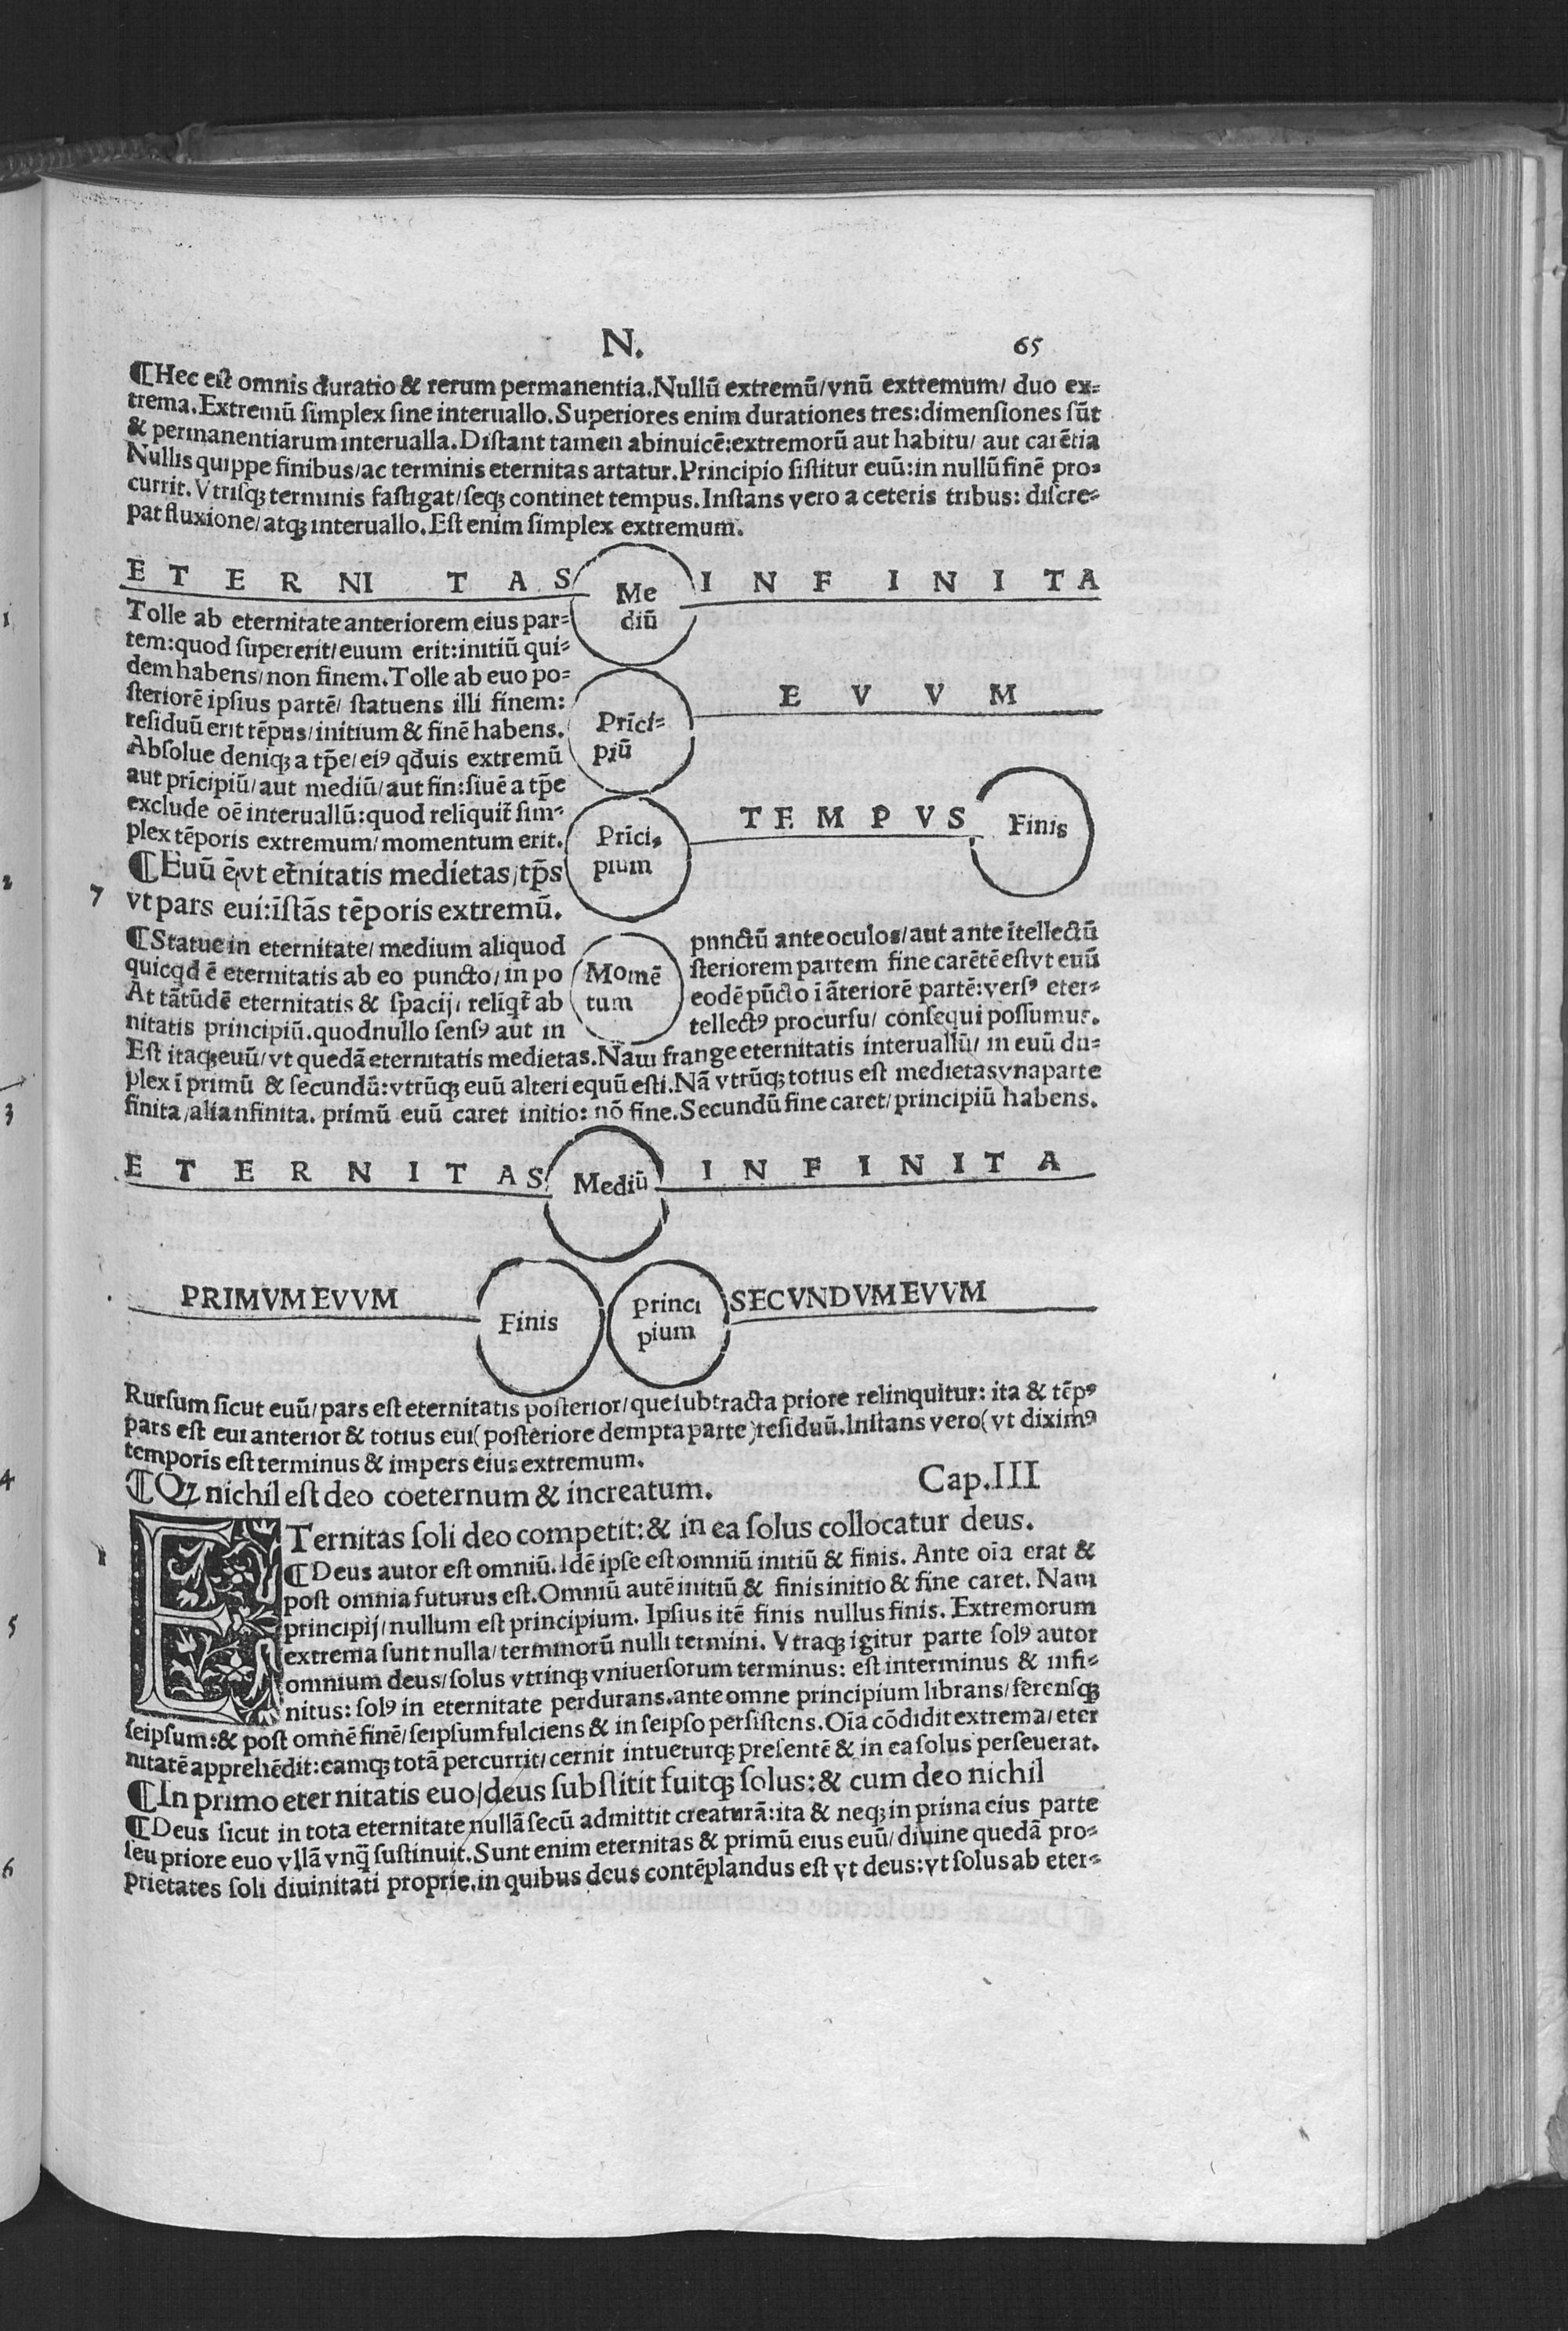 N.
65
¶Hec est omnis duratio & rerum permanentia. Nullū extremū/ vnū extremum/ duo ex=
trema. Extremū simplex sine interuallo. Superiores enim durationes tres: dimensiones sūt
& permanentiarum interualla. Distant tamen abinuicē: extremorū aut habitu/ aut carētia
Nullis quippe finibus/ ac terminis eternitas artatur. Principio sistitur euū: in nullū finē pro=
currit. Vtrisqꝫ terminis fastigat/ seqꝫ continet tempus. Instans vero a ceteris tribus: discre=
pat fluxione/ atqꝫ interuallo. Est enim simplex extremum.
ETERNITAS
Me
diū
INFINITA
1
Tolle ab eternitate anteriorem eius par=
tem: quod supererit/ euum erit: initiū qui=
dem habens/ non finem. Tolle ab euo po=
steriorē ipsius partē/ statuens illi finem:
residuū erit tēpus/ initium & finē habens.
Absolue deniqꝫ a tp̄e/ eiꝰ qđuis extremū
aut prīcipiū/ aut mediū/ aut fin: siuē a tp̄e
exclude oē interuallū: quod reliquit̄ sim=
plex tēporis extremum/ momentum erit.
Prīci=
piū
EVVM
Prīci=
pium
TEMPVS
Finis
2
7
¶Euū ē/ vt et̄nitatis medietas/ tp̄s
vt pars eui: īstās tēporis extremū.
¶Statue in eternitate/ medium aliquod
quicqd ē eternitatis ab eo puncto/ in po
At tātūdē eternitatis & spacij/ reliqt̄ ab
nitatis principiū. quod nullo sensꝰ aut in
Momē
tum
pnnctū ante oculos/ aut ante ītellectū
steriorem partem fine carētē est vt euū
eodē pūcto ī āteriorē partē: versꝰ eter=
tellectꝰ procursu/ consequi possumus.
Est itaqꝫ euū/ vt quedā eternitatis medietas. Nam frange eternitatis interuallū/ in euū du=
plex ī primū & secundū: vtrūqꝫ euū alteri equū esti. Nā vtrūqꝫ totius est medietas vna parte
3
finita/ alia nfinita. primū euū caret initio: nō fine. Secundū fine caret/ principiū habens.
ETERNITAS
Mediū
INFINITA
PRIMVM EVVM
Finis
princi
pium
SECVNDVM EVVM
Rursum sicut euū/ pars est eternitatis posterior/ que subtracta priore relinquitur: ita & tēpꝰ
pars est eui anterior & totius eui (posteriore dempta parte) residuū. Instans vero (vt diximꝰ
temporis est terminus & impers eius extremum.
4
¶Qꝫ nichil est deo coeternum & increatum.
Cap. III
ETernitas soli deo competit: & in ea solus collocatur deus.
¶Deus autor est omniū. Idē ipse est omniū initiū & finis. Ante oīa erat &
post omnia futurus est. Omniū autē initiū & finis initio & fine caret. Nam
5
principij/ nullum est principium. Ipsius itē finis nullus finis. Extremorum
extrema sunt nulla/ terminorū nulli termini. Vtraqꝫ igitur parte solꝰ autor
omnium deus/ solus vtrinqꝫ vniuersorum terminus: est interminus & infi=
nitus: solꝰ in eternitate perdurans. ante omne principium librans/ ferensqꝫ
seipsum: & post omnē finē/ seipsum fulciens & in seipso persistens. Oīa cōdidit extrema/ eter
nitatē apprehēdit: eamqꝫ totā percurrit/ cernit intueturqꝫ presentē & in ea solus perseuerat.
¶In primo eternitatis euo/ deus substitit fuitqꝫ solus: & cum deo nichil
¶Deus sicut in tota eternitate nullā secū admittit creaturā: ita & neqꝫ in prima eius parte
seu priore euo vllā vnq̄ sustinuit. Sunt enim eternitas & primū eius euū/ diuine quedā pro=
6
prietates soli diuinitati proprie. in quibus deus contēplandus est vt deus: vt solus ab eter=